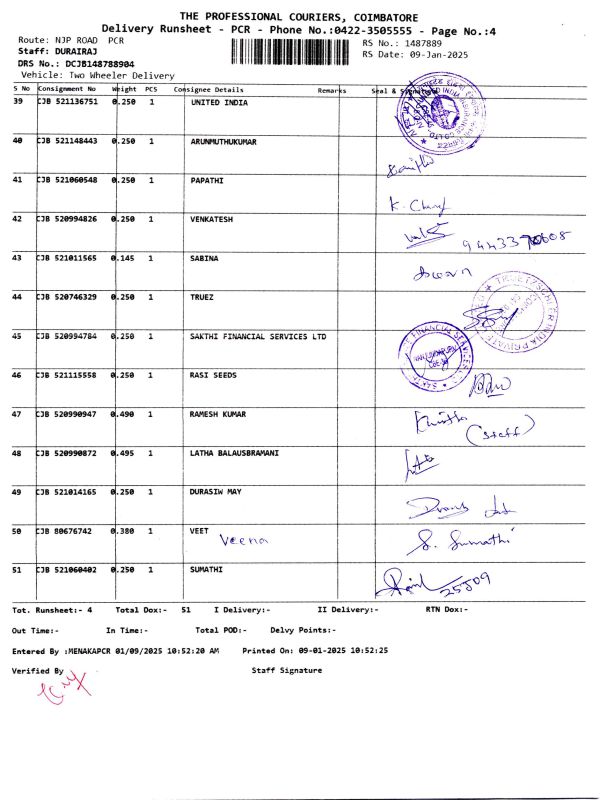 THE PROFESSIONAL COURIERS, COIMBATORE
Delivery Runsheet - PCR - Phone No.:0422-3505555 - Page No.:4
Route: NJP ROAD PCR
RS No.: 1487889
Staff: DURAIRAJ
RS Date: 09-Jan-2025
DRS No.: DCJB148788904
Vehicle: Two Wheeler Delivery
S No Consignment No Weight PCS Consignee Details Remarks Seal & Signature
39 CJB 521136751 0.250 1 UNITED INDIA
40 CJB 521148443 0.250 1 ARUNMUTHUKUMAR
41 CJB 521060548 0.250 1 PAPATHI
K.
42 CJB 520994826 0.250 1 VENKATESH
43 CJB 521011565 0.145 1 SABINA
44 CJB 520746329 0.250 1 TRUEZ
45 CJB 520994784 0.250 1 SAKTHI FINANCIAL SERVICES LTD
46 CJB 521115558 0.250 1 RASI SEEDS
47 CJB 520990947 0.490 1 RAMESH KUMAR
(staff)
48 CJB 520990872 0.495 1 LATHA BALAUSBRAMANI
49 CJB 521014165 0.250 1 DURASIW MAY
50 CJB 80676742 0.380 1 VEET
Veena
S. Sumathi
51 CJB 521060402 0.250 1 SUMATHI
25509
Tot. Runsheet:- 4 Total Dox:- 51 I Delivery:- II Delivery:- RTN Dox:-
Out Time:- In Time:- Total POD:- Delvy Points:-
Entered By :MENAKAPCR 01/09/2025 10:52:20 AM Printed On: 09-01-2025 10:52:25
Verified By Staff Signature